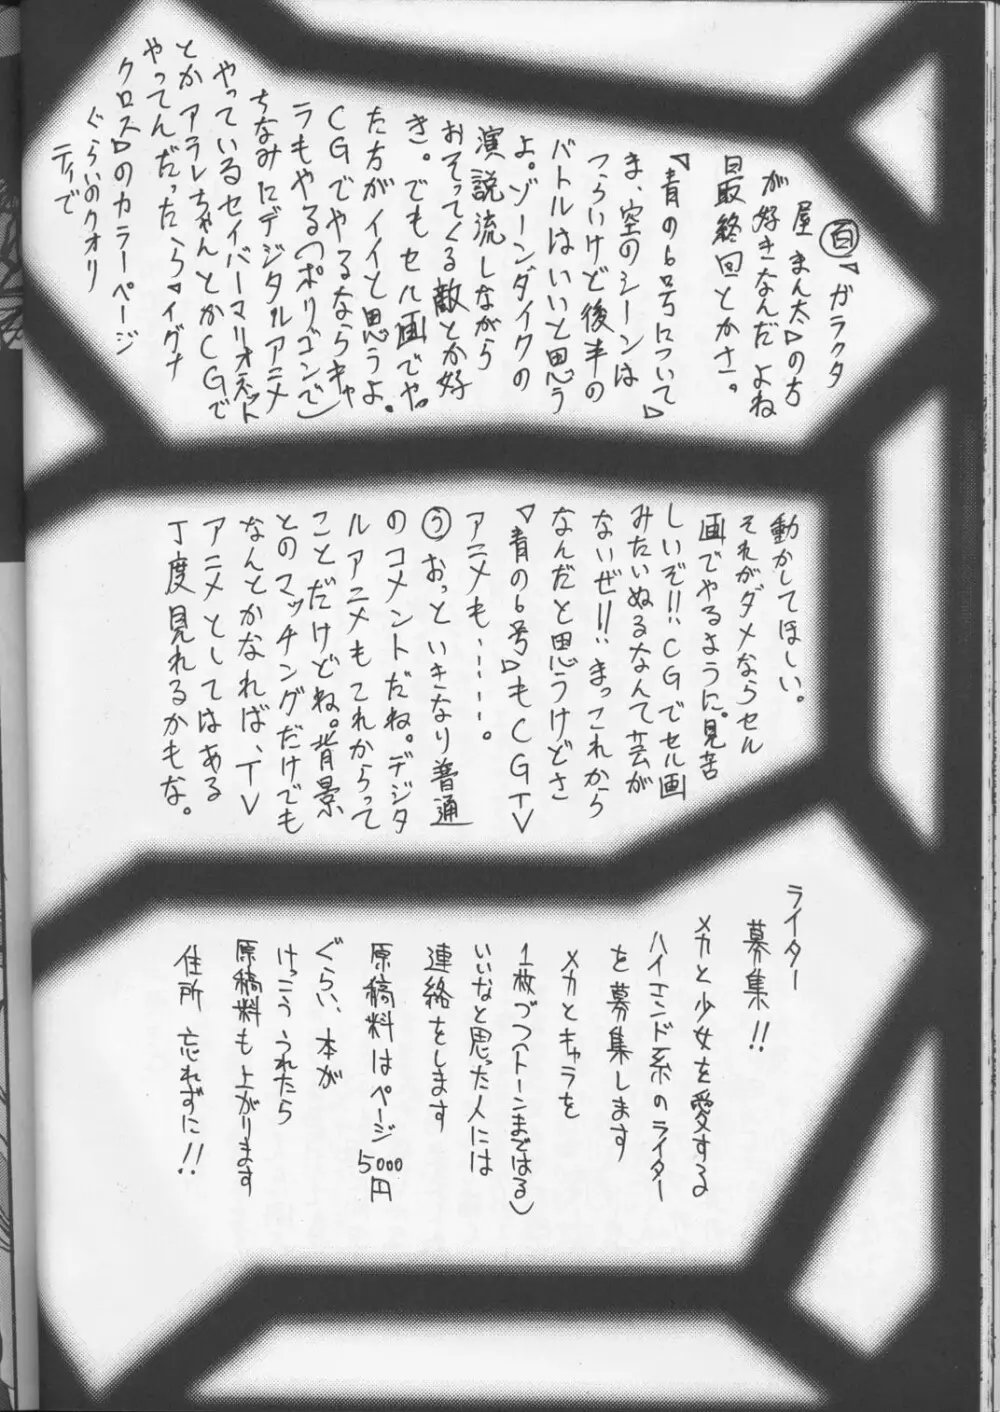 百「ガラクタ
屋まん太」の方
が好きなんだよね
最終回とかさ。
「青の6号について」
ま、空のシーンは
つらいけど後半の
バトルはいいと思う
よ。ゾーンダイクの
演説流しながら
おそってくる敵とか好
き。でもセル画でや
った方がイイと思うよ。
CGでやるならキャ
ラもやる(ポリゴンで)
ちなみにデジタルアニメ
やっているセイバーマリオネット
とかアラレちゃんとかCGで
やってんだったら「イグナ
クロス」のカラーページ
ぐらいのクオリ
ティで
動かしてほしい。
それがダメならセル
画でやるように。見苦
しいぞ!!CGでセル画
みたいぬるなんて芸が
ないぜ!!まっこれから
なんだと思うけどさ
「青の6号」もCGTV
アニメも・・・・・。
う おっといきなり普通
のコメントだね。デジタ
ルアニメもこれからって
ことだけどね。背景
とのマッチングだけでも
なんとかなれば、TV
アニメとしてはある
丁度見れるかもな。
ライター
募集!!
メカと少女を愛する
ハイエンド系のライター
を募集します
メカとキャラを
1枚づつ(トーンまではる)
いいなと思った人には
連絡をします
原稿料はページ5000円
ぐらい、本が
けっこううれたら
原稿料も上がります
住所 忘れずに!!